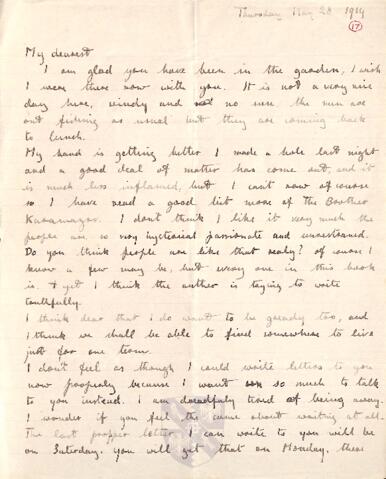 Thursday May 28 1914
17
My dearest
I am glad you have been in the garden, I wish
I were there now with you. It is not a very nice
day here, windy and no sun the men are
out fishing as usual but they are coming back
to lunch.
My hand is getting better I made a hole last night
and a good deal of matter has come out, and it
is much less inflamed, but I can't row of course
so I have read a good bit more of the Brother
Karamazov. I don't think I like it very much the
people are so very hysterical passionate and
Do you think people are like that realy? of course I
know a few may be, but every one in this book
is, & yet I think the author is trying to write
truthfully.
I think dear that I do want to be greedy too, and
I think we shall be able to find somewhere to live
just for one term.
I don't feel as though I could write letters to you
now properly because I want so much to talk
to you instead. I am dreadfully tired of being away.
I wonder if you feel the same about waiting at all.
The last propper letter I can write to you will be
on Saturday. you will get that on Monday, then